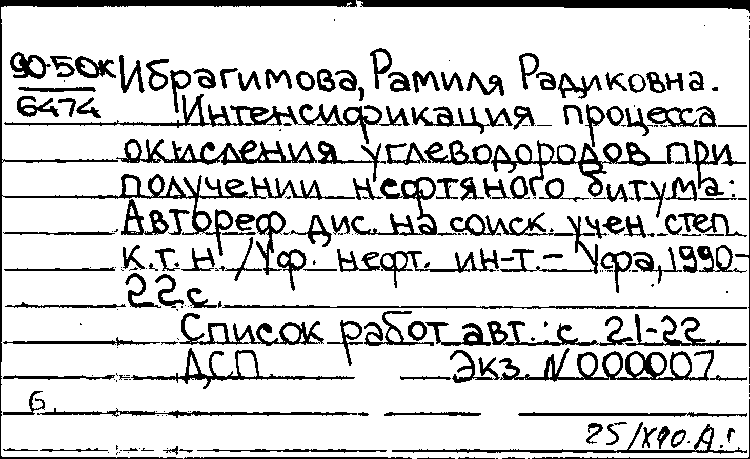 90-50к Ибрагимова, Рамиля Радиковна.
6474 Интенсификация процесса
окисления углеводородов при
получении нефтяного битума:
Автореф. дис. на соиск. учен. степ.
к.т.н. /Уф. нефт. ин-т. - Уфа, 1990-
22с.
Список работ авт.: с. 21-22.
ДСП Экз. N 000007.
Б.
25/X90. А.Г.